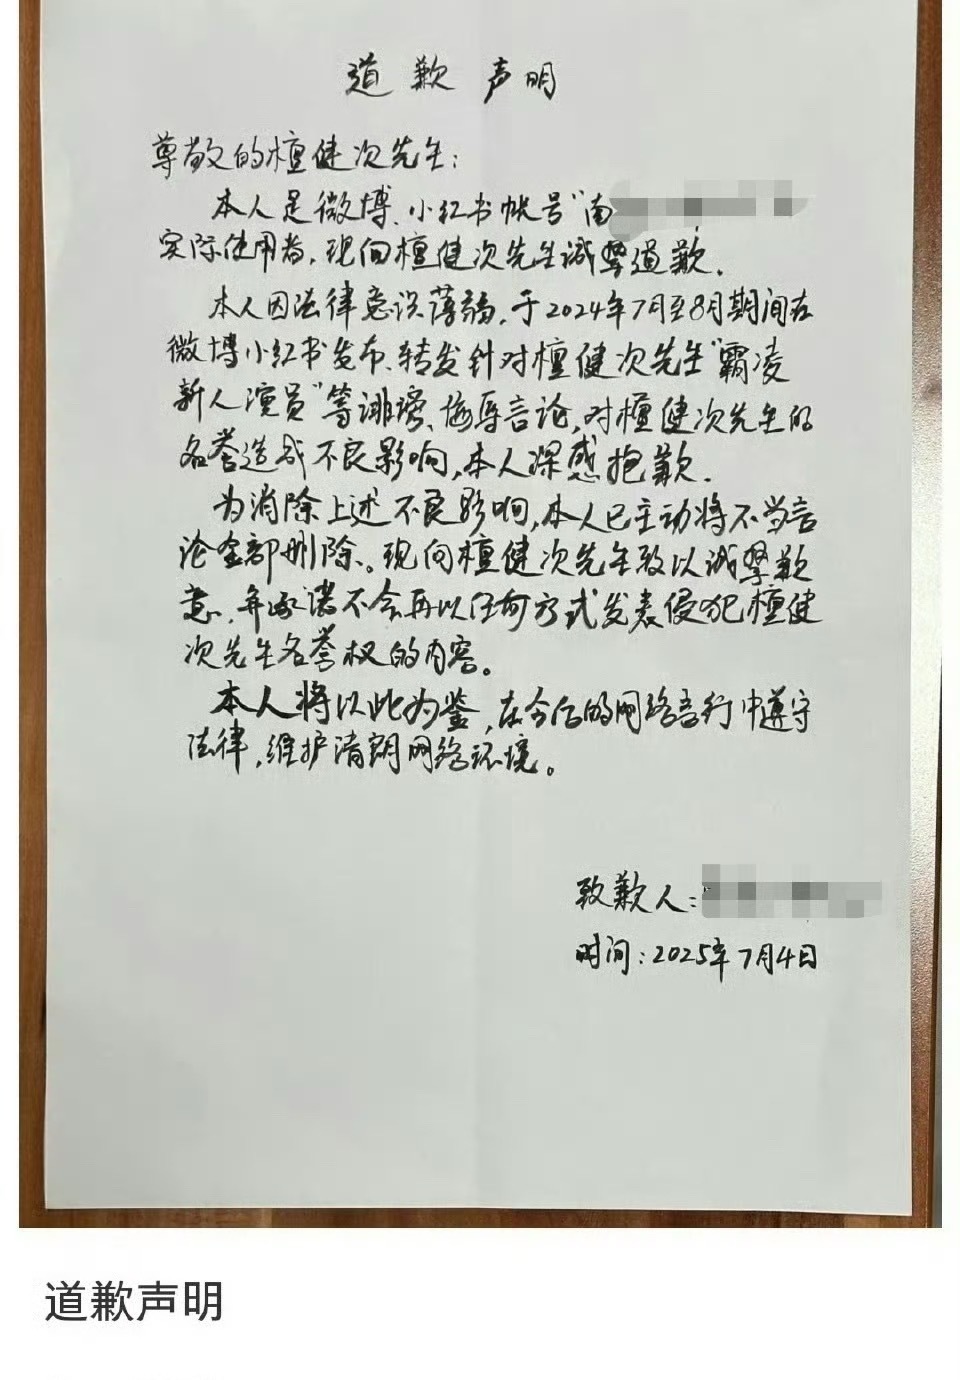 道歉声明
尊敬的檀健次先生：
本人是微博、小红书帐号"南
实际使用者，现向檀健次先生诚挚道歉.
本人因法律意识薄弱，于2024年7月至8月期间在
微博小红书发布、转发针对檀健次先生"霸凌
新人演员"等诽谤、侮辱言论，对檀健次先生的
名誉造成不良影响，本人深感抱歉.
为消除上述不良影响，本人已主动将不当言
论全部删除。现向檀健次先生致以诚挚歉
意，并承诺不会再以任何方式发表侵犯檀健
次先生名誉权的内容。
本人将以此为鉴，在今后的网络言行中遵守
法律，维护清朗网络环境。
致歉人：
时间：2025年7月4日
道歉声明